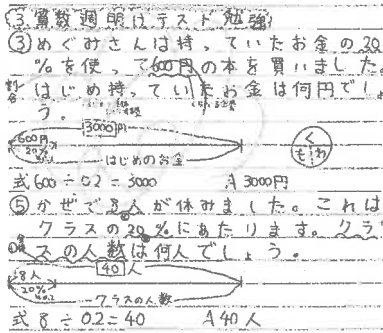 3 算数週明けテスト勉強
③めぐみさんは持っていたお金の20
%を使って600円の本を買いました。
はじめ持っていたお金は何円でしょ
う。
3000円
600円
20%
はじめのお金
く
も わ
式600÷0.2=3000 A 3000円
⑤かぜで8人が休みました。これは
クラスの20%にあたります。クラ
スの人数は何人でしょう。
40人
8人
20%
クラスの人数
式 8÷0.2=40 A 40人